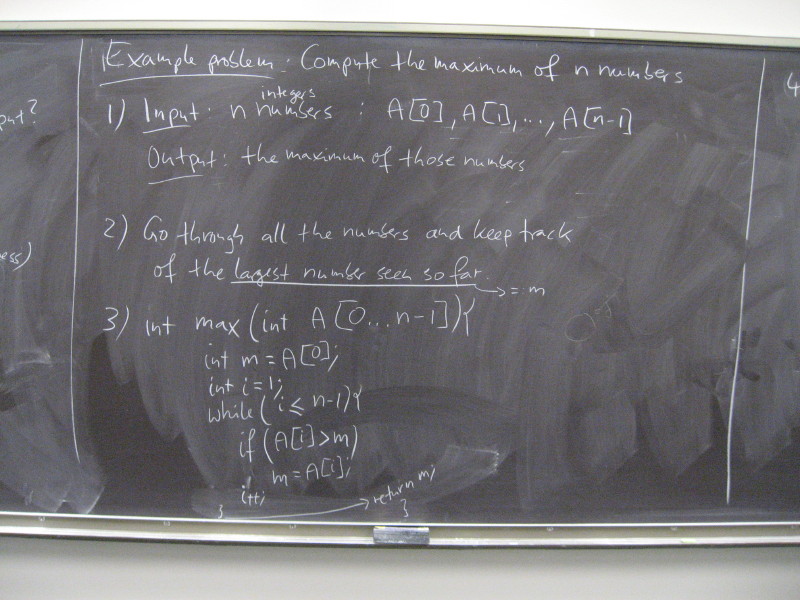 Example problem: Compute the maximum of n numbers
integers
1) Input: n numbers : A[0], A[1], ..., A[n-1]
Output: the maximum of those numbers
2) Go through all the numbers and keep track
of the largest number seen so far.
→ =: m
3) int max (int A[0...n-1]){
int m = A[0];
int i = 1;
while (i ≤ n-1){
if (A[i] > m)
m = A[i];
i++;
} → return m;
}
put?
ess)
4